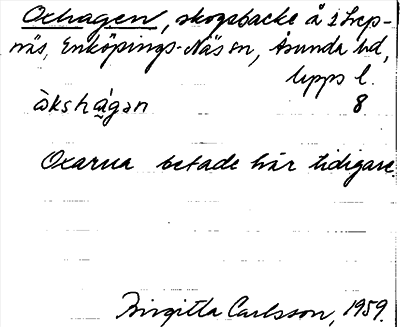 Oxhagen, skogsbacke å 2 Trep-
näs, Enköpings-Näs sn, Åsunda hd,
Upps l.
àkshágan 8
Oxarna betade här tidigare.
Birgitta Carlsson, 1959.